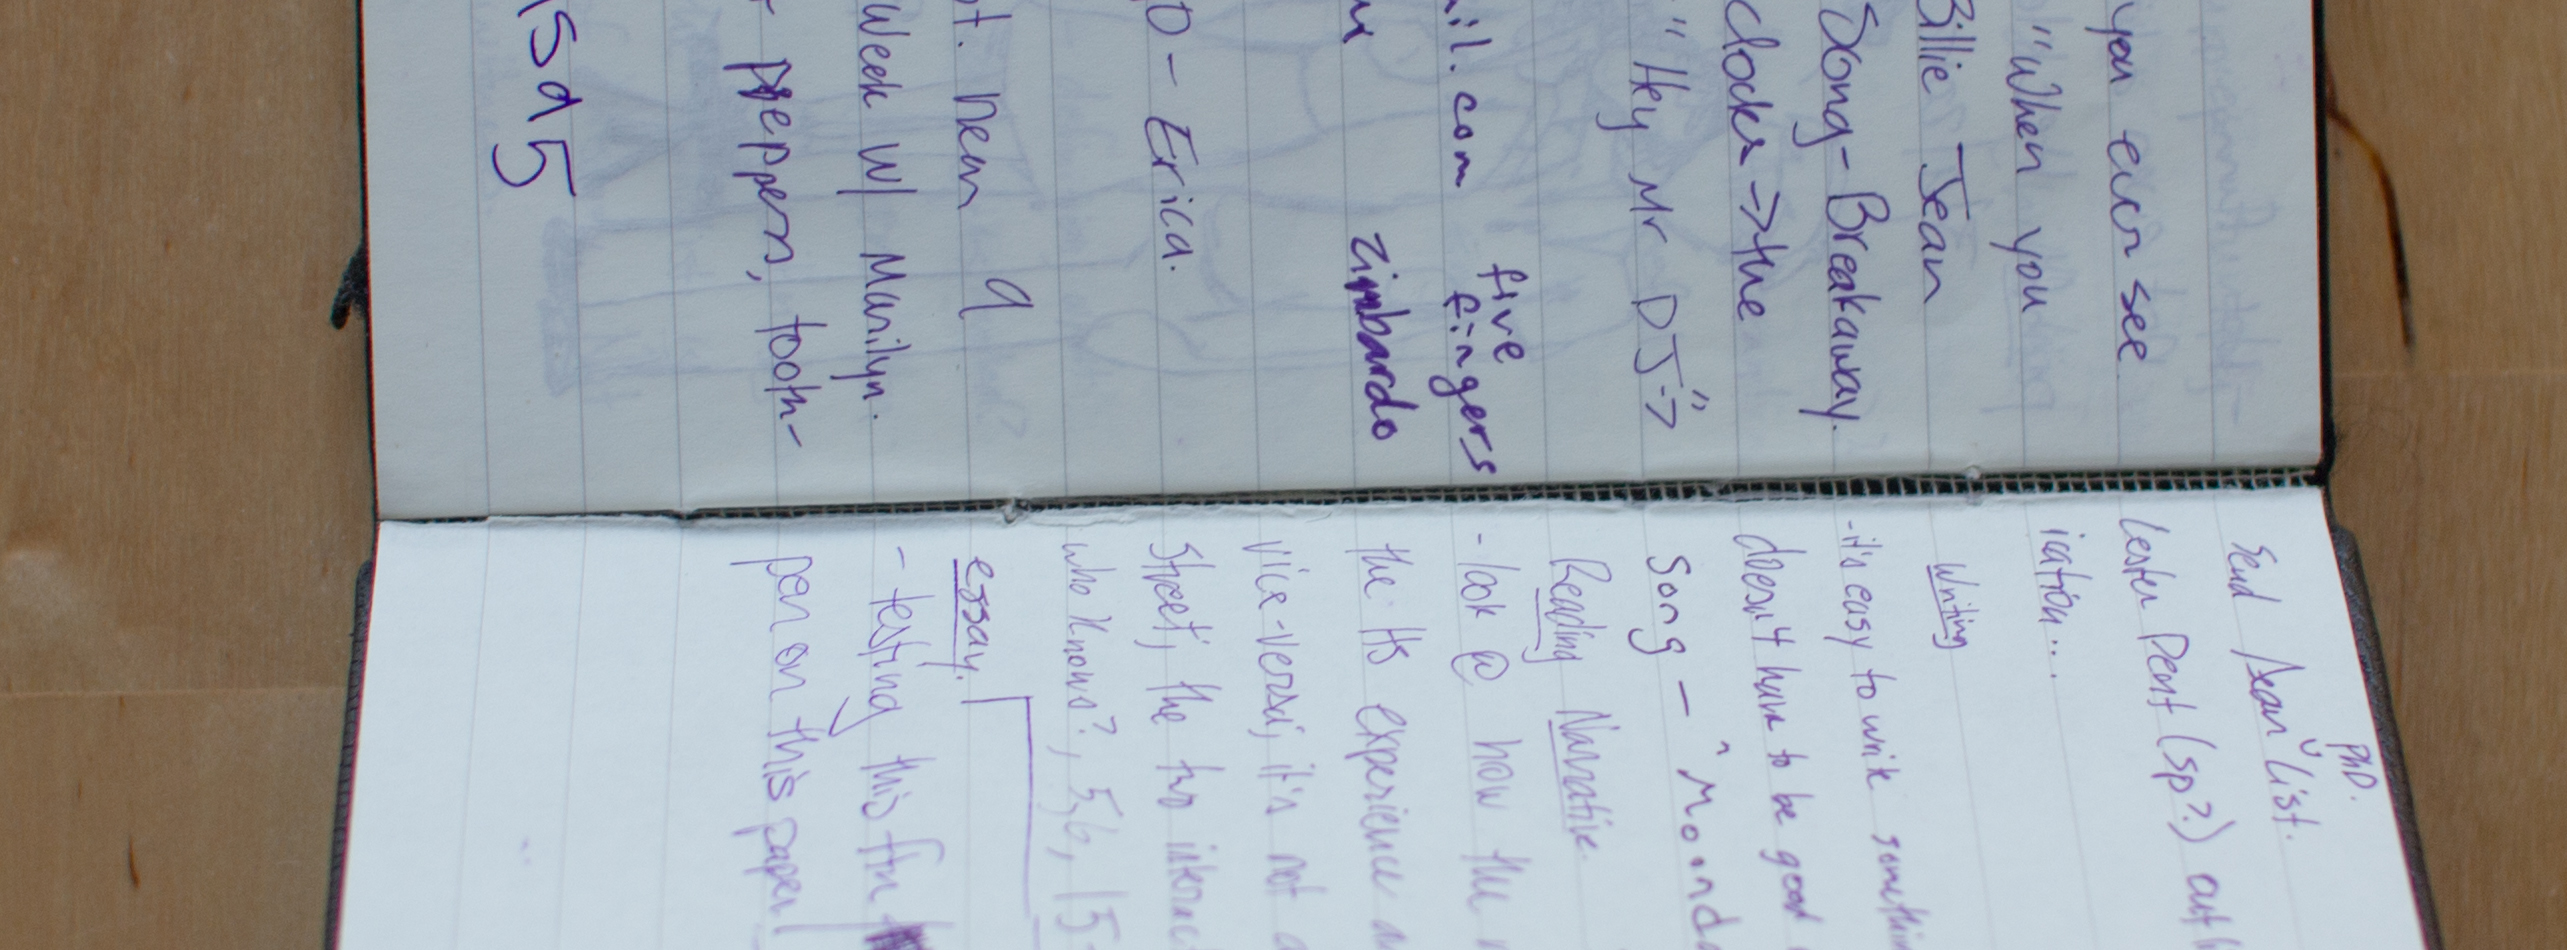 you ever see
"When you
Billie Jean
Song - Breakaway.
clocks → the
"Hey Mr DJ" →
five
il.com fingers
zimbardo
O - Erica.
t. new 9
Week w/ Marilyn.
peppers, tooth-
5
PhD.
Send Dean List.
Lester Dent (sp?)
ication...
Writing
- it's easy to write
doesn't have to be good
Song -
Reading Narrative.
- look @ how the
the experience
vice-versa, it's not a
Street, the two
who knows?, 5, 6, 15
essay.
- testing this
pen on this paper